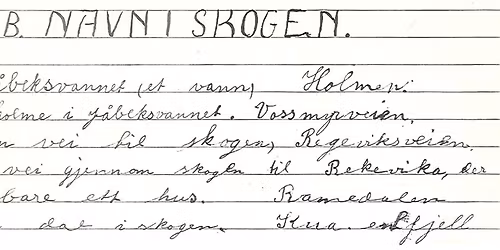 B. NAVN I SKOGEN.
åbeksvannet (et vann) Holmen:
olme i påbeksvannet. Vossmyrveien,
n vei til skogen, Regeviksveien,
vei gjennom skogen til Rekevika, der
bare ett hus. Ramedalen
dal i skogen. Kua. en fjell